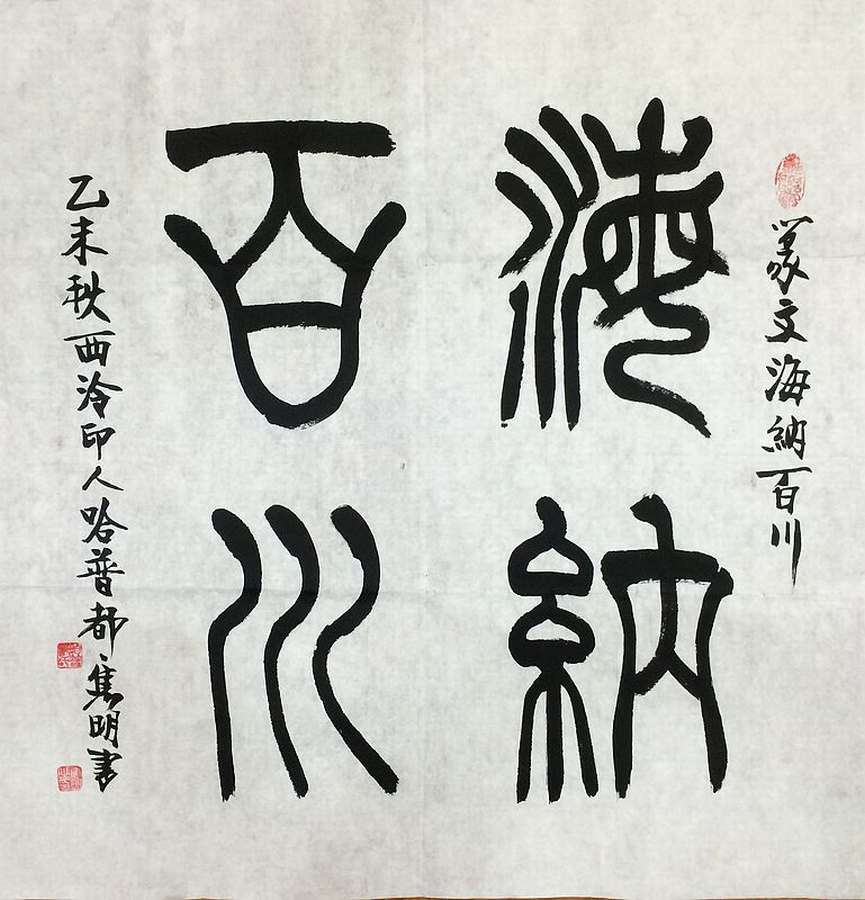 篆文海納百川
海納
百川
乙未秋西泠印人哈普都·隽明書